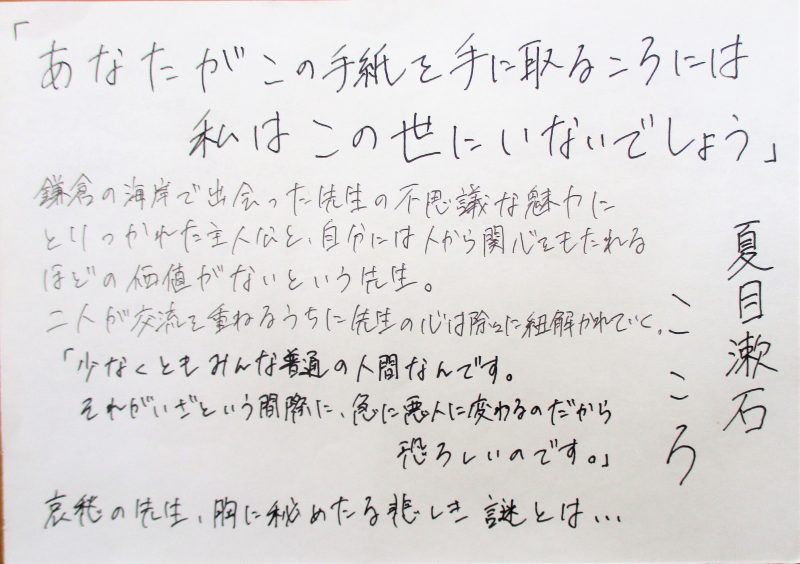 「
あなたがこの手紙を手に取るころには
私はこの世にいないでしょう」
鎌倉の海岸で出会った先生の不思議な魅力に
とりつかれた主人公と、自分には人から関心をもたれる
ほどの価値がないという先生。
二人が交流を重ねるうちに先生の心は除々に紐解かれていく。
「少なくともみんな普通の人間なんです。
それがいざという間際に、急に悪人に変わるのだから
恐ろしいのです。」
哀愁の先生、胸に秘めたる悲しき謎とは…
夏目漱石
こころ